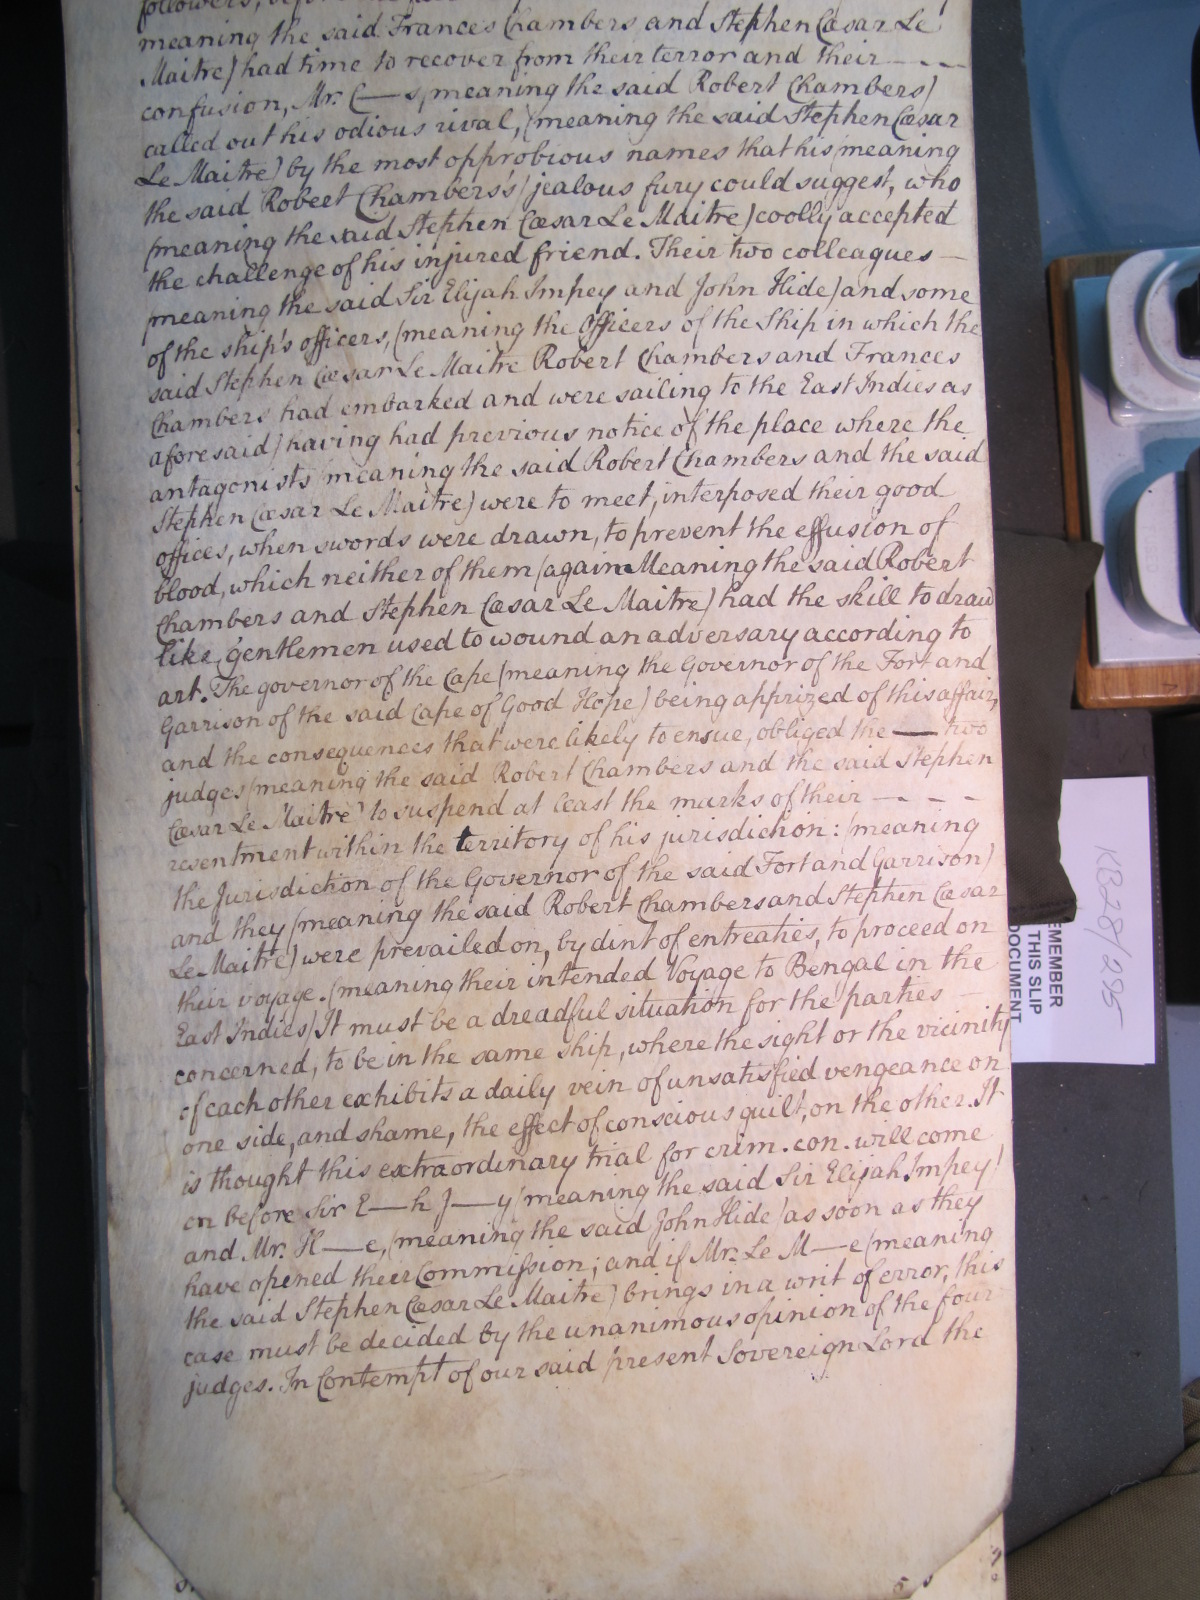 followers,
meaning the said Frances Chambers and Stephen Cæsar Le
Maitre) had time to recover from their terror and their — – – –
confusion, Mr. C—s, (meaning the said Robert Chambers)
called out his odious rival, (meaning the said Stephen Cæsar
Le Maitre) by the most opprobious names that his (meaning
the said Robert Chambers's) jealous fury could suggest, who
(meaning the said Stephen Cæsar Le Maitre) coolly accepted
the challenge of his injured friend. Their two colleagues —
(meaning the said Sir Elijah Impey and John Hide) and some
of the ship's officers, (meaning the Officers of the Ship in which the
said Stephen Cæsar Le Maitre Robert Chambers and Frances
Chambers had embarked and were sailing to the East Indies as
aforesaid) having had previous notice of the place where the
antagonists (meaning the said Robert Chambers and the said
Stephen Cæsar Le Maitre) were to meet, interposed their good
offices, when swords were drawn, to prevent the effusion of
blood, which neither of them (again Meaning the said Robert
Chambers and Stephen Cæsar Le Maitre) had the skill to draw
like, gentlemen used to wound an adversary according to
art. The governor of the Cape (meaning the Governor of the Fort and
Garrison of the said Cape of Good Hope) being apprized of this affair,
and the consequences that were likely to ensue, obliged the — two
judges (meaning the said Robert Chambers and the said Stephen
Cæsar Le Maitre) to suspend at least the marks of their — – – –
resentment within the territory of his jurisdiction: (meaning
the Jurisdiction of the Governor of the said Fort and Garrison)
and they (meaning the said Robert Chambers and Stephen Cæsar
Le Maitre) were prevailed on, by dint of entreaties, to proceed on
their voyage. (meaning their intended Voyage to Bengal in the
East Indies) It must be a dreadful situation for the parties —
concerned, to be in the same ship, where the sight or the vicinity
of each other exhibits a daily vein of unsatisfied vengeance on
one side, and shame, the effect of conscious guilt, on the other. It
is thought this extraordinary trial for crim. con. will come
on before Sir E—h I—y (meaning the said Sir Elijah Impey)
and Mr. H—e, (meaning the said John Hide) as soon as they
have opened their Commission; and if Mr. Le M—e (meaning
the said Stephen Cæsar Le Maitre) brings in a writ of error, this
case must be decided by the unanimous opinion of the four
judges. In Contempt of our said present Sovereign Lord the
KB28/295
EMEMBER
THIS SLIP
DOCUMENT